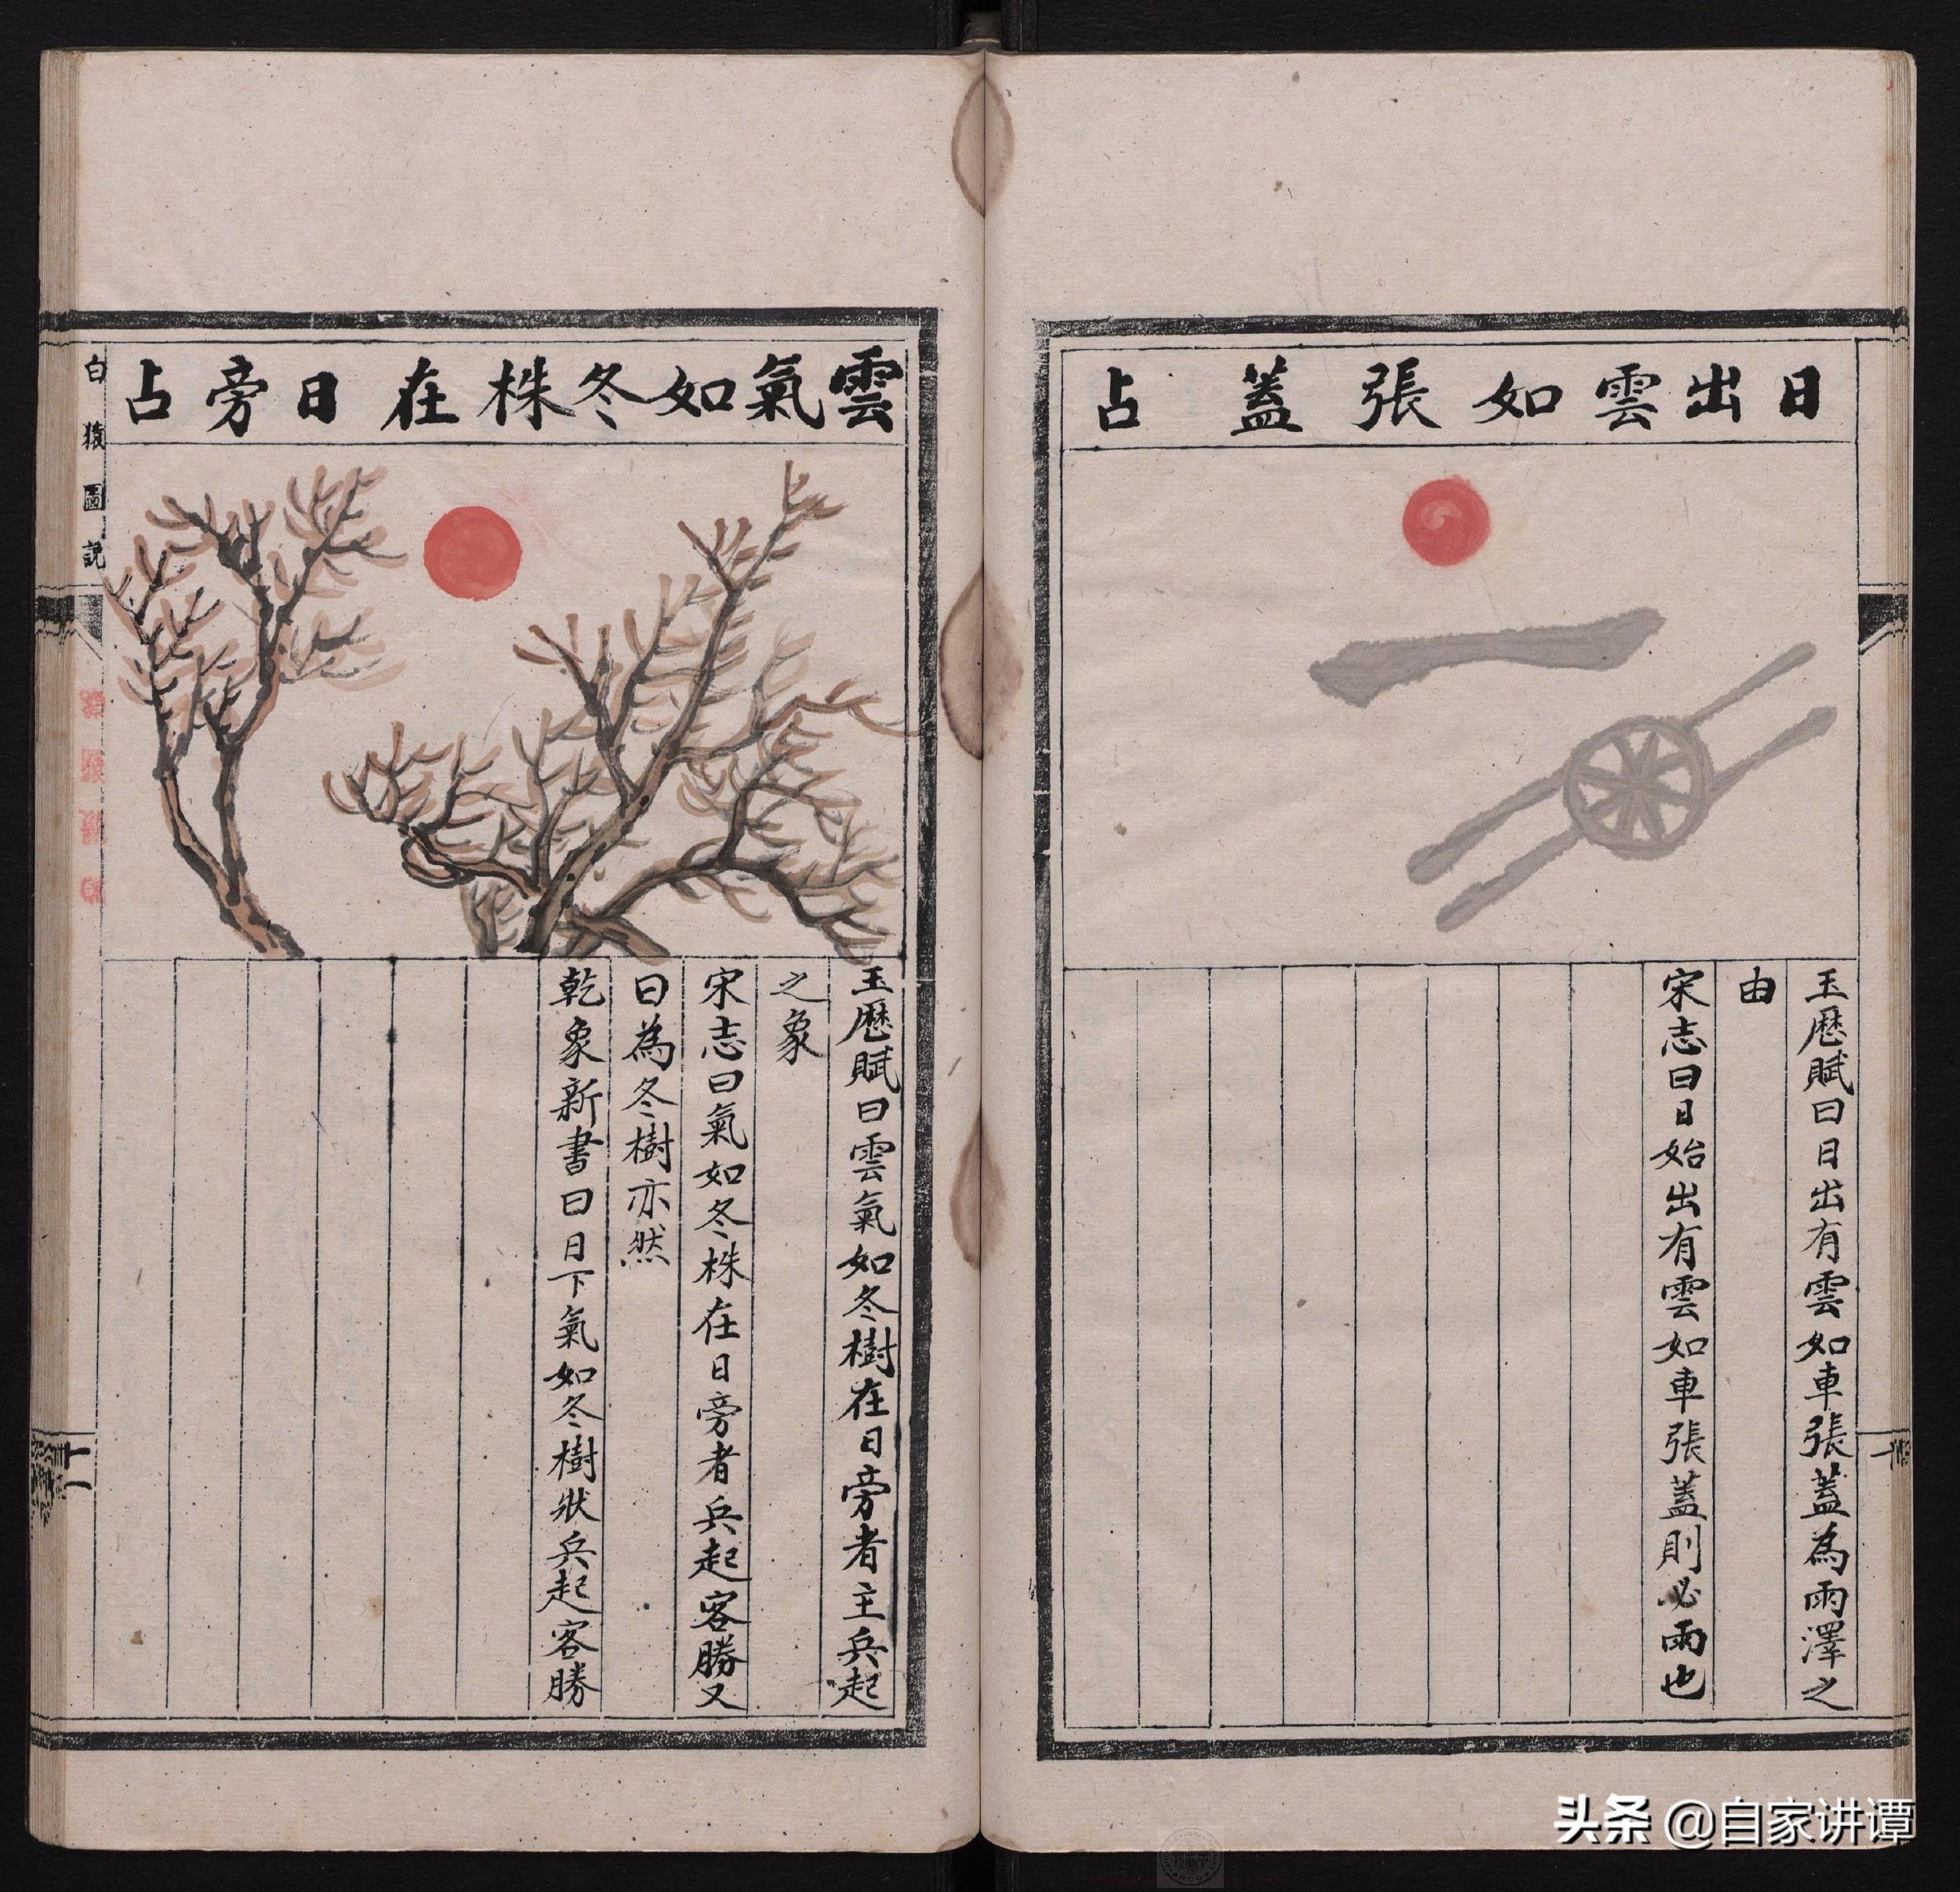 日出雲如張蓋占
玉厯賦曰日出有雲如車張蓋為雨澤之
由
宋志曰日始出有雲如車張蓋則必雨也
雲氣如冬株在日旁占
玉厯賦曰雲氣如冬樹在日旁者主兵起
之象
宋志曰氣如冬株在日旁者兵起客勝又
曰為冬樹亦然
乾象新書曰日下氣如冬樹狀兵起客勝
白猿圖説
十一
头条 @自家讲谭